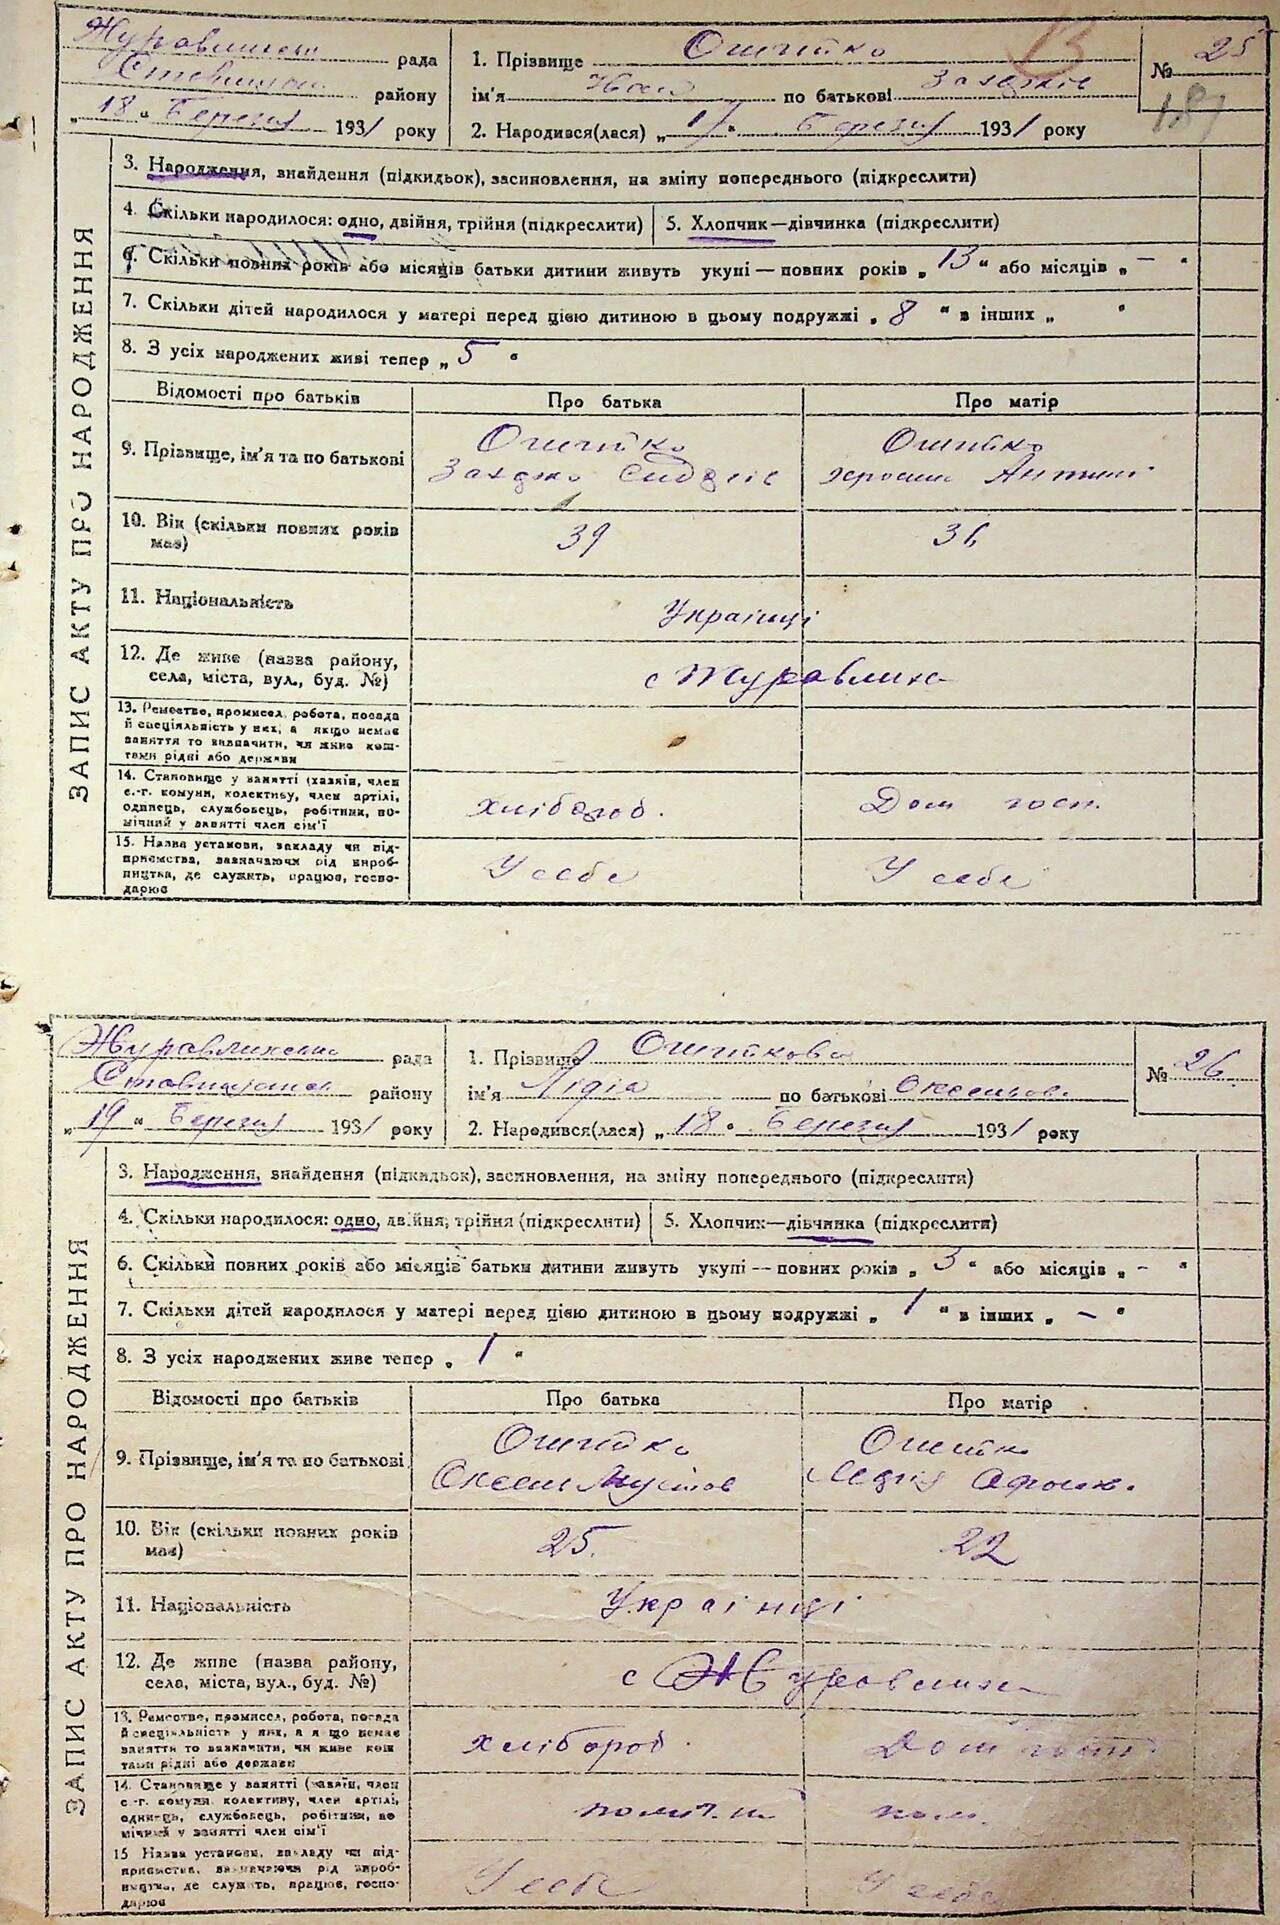 рада
Ставищан району
„18“ Березня 1931 року
1. Прізвище Ошийко
ім'я Іван по батькові Захарків
2. Народився(лася) „17“ Березня 1931 року
№ 25
13
181
ЗАПИС АКТУ ПРО НАРОДЖЕННЯ
3. Народження, знайдення (підкидьок), засиновлення, на зміну попереднього (підкреслити)
4. Скільки народилося: одно, двійня, трійня (підкреслити)
5. Хлопчик—дівчинка (підкреслити)
6. Скільки повних років або місяців батьки дитини живуть укупі — повних років „13“ або місяців „—“
7. Скільки дітей народилося у матері перед цією дитиною в цьому подружжі „8“ в інших „ “
8. З усіх народжених живі тепер „5“
Відомості про батьків
Про батька
Про матір
9. Прізвище, ім'я та по батькові
Ошийко
Ошийко
10. Вік (скільки повних років
має)
39
36
11. Національність
Українці
12. Де живе (назва району,
села, міста, вул., буд. №)
с Журавлиха
13. Ремество, промисел, робота, посада
й спеціяльність у них, а якщо немає
заняття то зазначити, чи живе кош-
тами рідні або держави
14. Становище у занятті (хазяїн, член
с.-г. комуни, колективу, член артілі,
одинець, службовець, робітник, по-
мічний у занятті член сім'ї
хлібороб.
Дом госп.
15. Назва установи, закладу чи під-
приємства, зазначаючи рід вироб-
ництва, де служить, працює, госпо-
дарює
У себе
У себе
Журавлиханська рада
Ставищанськ району
„19“ Березня 1931 року
1. Прізвище Ошийкова
ім'я Лідія по батькові Оксентова
2. Народився(лася) „18“ Березня 1931 року
№ 26
ЗАПИС АКТУ ПРО НАРОДЖЕННЯ
3. Народження, знайдення (підкидьок), засиновлення, на зміну попереднього (підкреслити)
4. Скільки народилося: одно, двійня, трійня (підкреслити)
5. Хлопчик—дівчинка (підкреслити)
6. Скільки повних років або місяців батьки дитини живуть укупі — повних років „3“ або місяців „-“
7. Скільки дітей народилося у матері перед цією дитиною в цьому подружжі „1“ в інших „—“
8. З усіх народжених живе тепер „1“
Відомості про батьків
Про батька
Про матір
9. Прізвище, ім'я та по батькові
Ошийко
Ошийко
10. Вік (скільки повних років
має)
25.
22
11. Національність
Українці
12. Де живе (назва району,
села, міста, вул., буд. №)
с Журавлиха
13. Ремество, промисел, робота, посада
й спеціяльність у них, а якщо немає
заняття то зазначити, чи живе кош
тами рідні або держави
хлібороб.
Дом госп.
14. Становище у занятті (хазяїн, член
с.-г. комуни колективу, член артілі,
одинець, службовець, робітник, по
мічний у занятті член сім'ї
пом.
15 Назва установи, закладу чи під-
приємства, зазначаючи рід вироб-
ництва, де служить, працює, госпо-
дарює
У себе
У себе